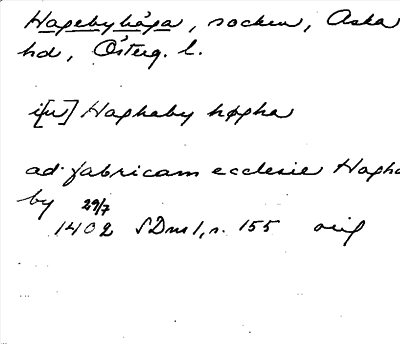 Hagebyhöga, socken, Aska
hd, Österg. l.
i[n] Haghaby høgha
ad fabricam ecclesie Hagha
by 29/7
1402 SDns 1, s. 155 orig